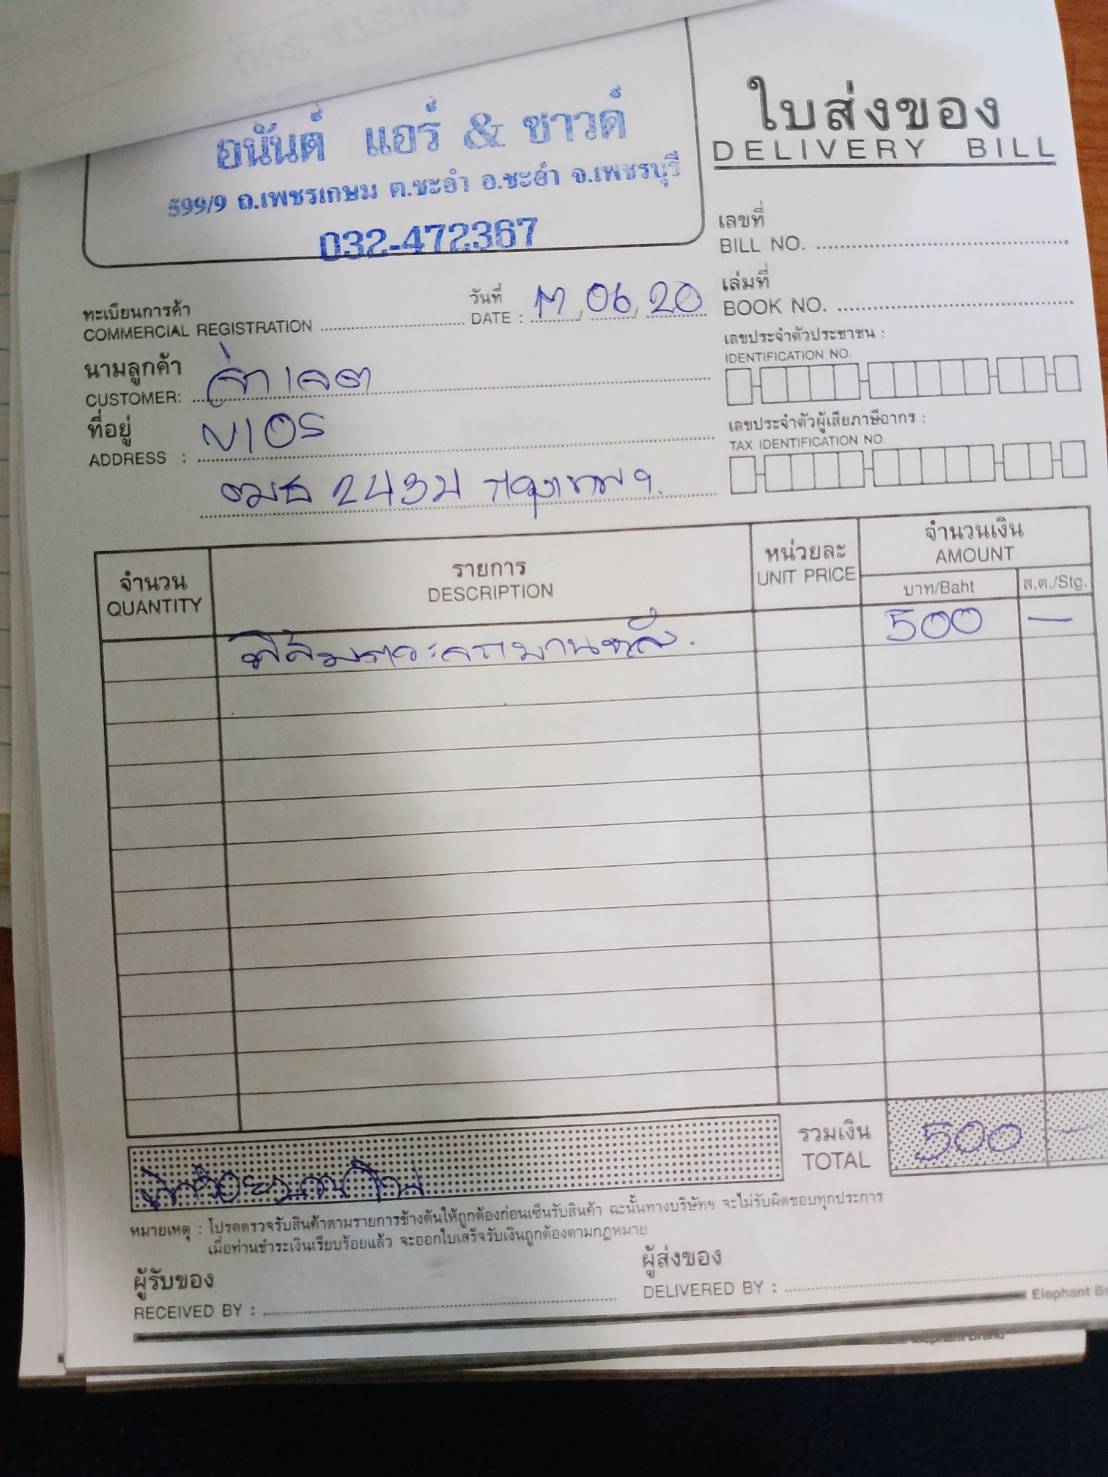 อนันต์ แอร์ & ซาวด์
599/9 ถ.เพชรเกษม ต.ชะอำ อ.ชะอำ จ.เพชรบุรี
032-472367
ใบส่งของ
DELIVERY BILL
เลขที่
BILL NO.
เล่มที่
BOOK NO.
ทะเบียนการค้า
COMMERCIAL REGISTRATION
วันที่
DATE : 17, 06, 20
เลขประจำตัวประชาชน :
IDENTIFICATION NO.
นามลูกค้า
CUSTOMER:
ที่อยู่
ADDRESS : VIOS
2432 กรุงเทพฯ
เลขประจำตัวผู้เสียภาษีอากร :
TAX IDENTIFICATION NO.
จำนวน
QUANTITY
รายการ
DESCRIPTION
หน่วยละ
UNIT PRICE
จำนวนเงิน
AMOUNT
บาท/Baht
ส.ต./Stg.
500 —
รวมเงิน
TOTAL
500 —
หมายเหตุ : โปรดตรวจรับสินค้าตามรายการข้างต้นให้ถูกต้องก่อนเซ็นรับสินค้า ฉะนั้นทางบริษัทฯ จะไม่รับผิดชอบทุกประการ
เมื่อท่านชำระเงินเรียบร้อยแล้ว จะออกใบเสร็จรับเงินถูกต้องตามกฎหมาย
ผู้รับของ
RECEIVED BY :
ผู้ส่งของ
DELIVERED BY :
Elephant